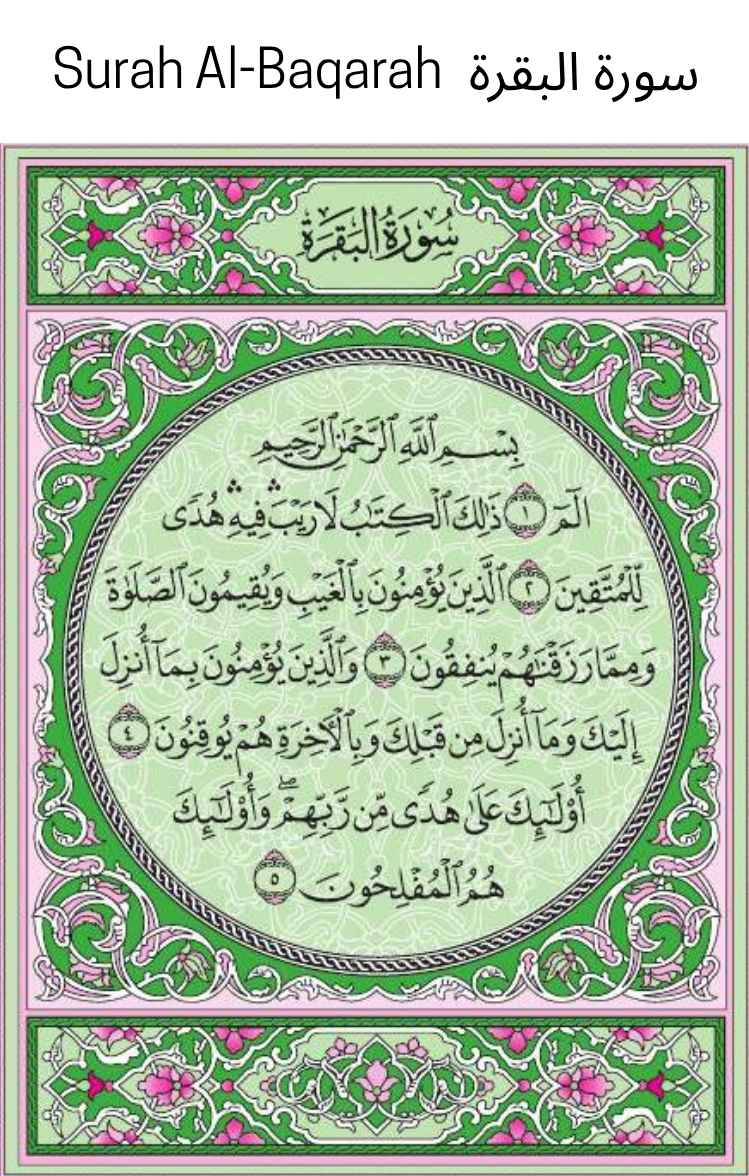 Surah Al-Baqarah سورة البقرة
سُورَةُ البَقَرَةِ
بِسْمِ ٱللَّهِ ٱلرَّحْمَٰنِ ٱلرَّحِيمِ
الٓمٓ ١ ذَٰلِكَ ٱلْكِتَٰبُ لَا رَيْبَ ۛ فِيهِ ۛ هُدًى
لِّلْمُتَّقِينَ ٢ ٱلَّذِينَ يُؤْمِنُونَ بِٱلْغَيْبِ وَيُقِيمُونَ ٱلصَّلَوٰةَ
وَمِمَّا رَزَقْنَٰهُمْ يُنفِقُونَ ٣ وَٱلَّذِينَ يُؤْمِنُونَ بِمَآ أُنزِلَ
إِلَيْكَ وَمَآ أُنزِلَ مِن قَبْلِكَ وَبِٱلْأَخِرَةِ هُمْ يُوقِنُونَ ٤
أُو۟لَٰٓئِكَ عَلَىٰ هُدًى مِّن رَّبِّهِمْ ۖ وَأُو۟لَٰٓئِكَ
هُمُ ٱلْمُفْلِحُونَ ٥